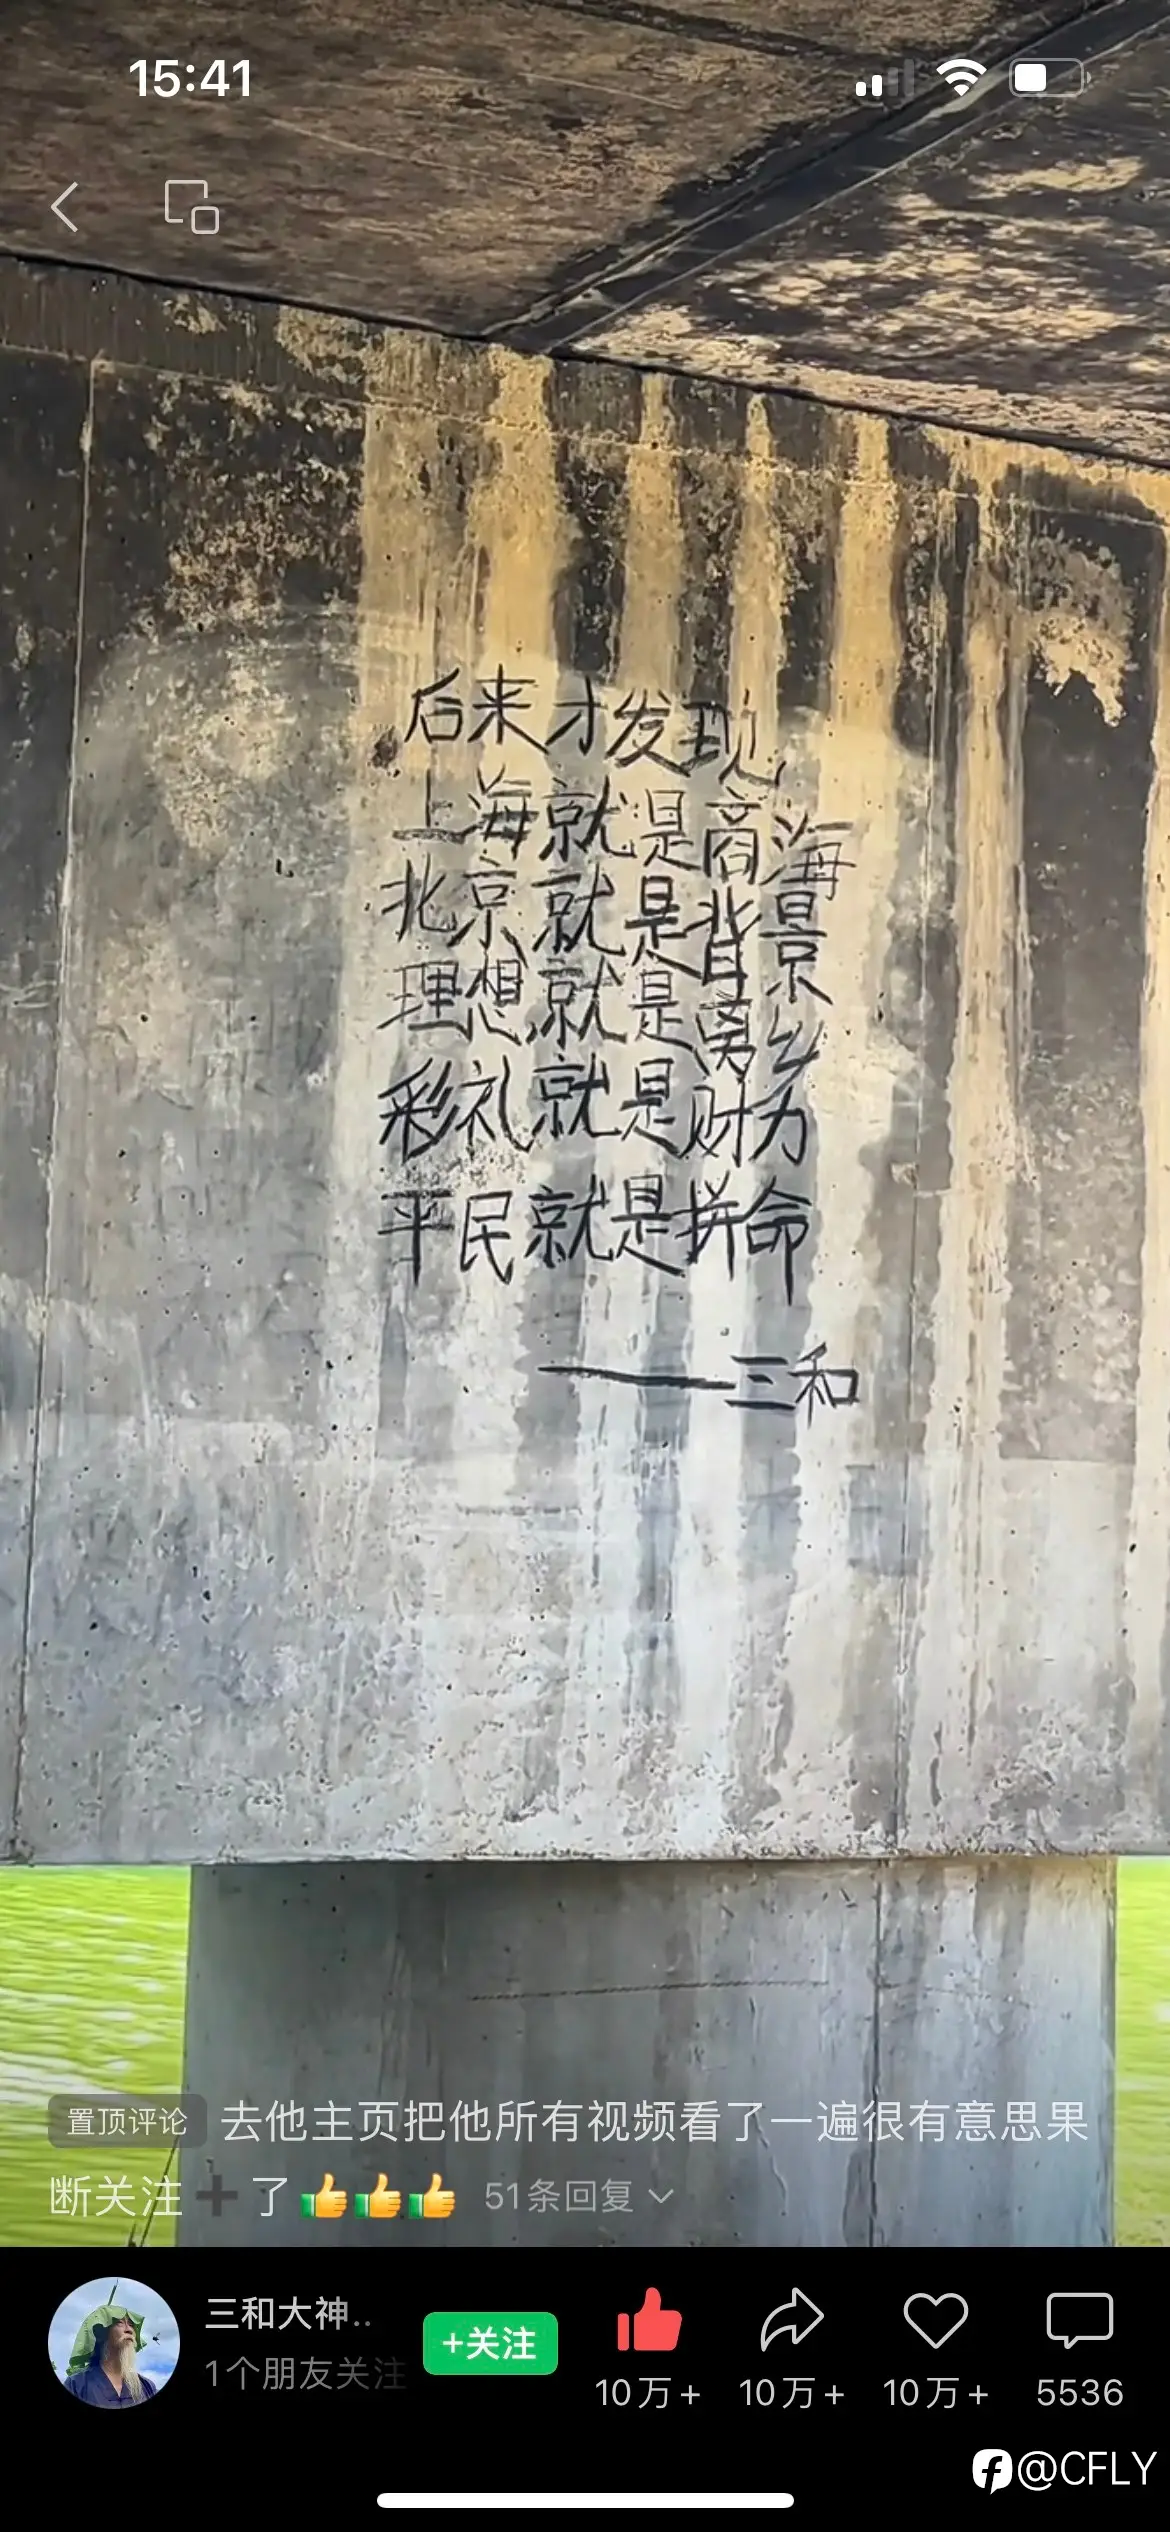 15:41
后来才发现
上海就是商海
北京就是背景
理想就是离乡
彩礼就是财力
平民就是拼命
——三和
置顶评论 去他主页把他所有视频看了一遍很有意思果
断关注➕了👍👍👍 51条回复
三和大神..
1个朋友关注
+关注
10万+ 10万+ 10万+ 5536
@CFLY